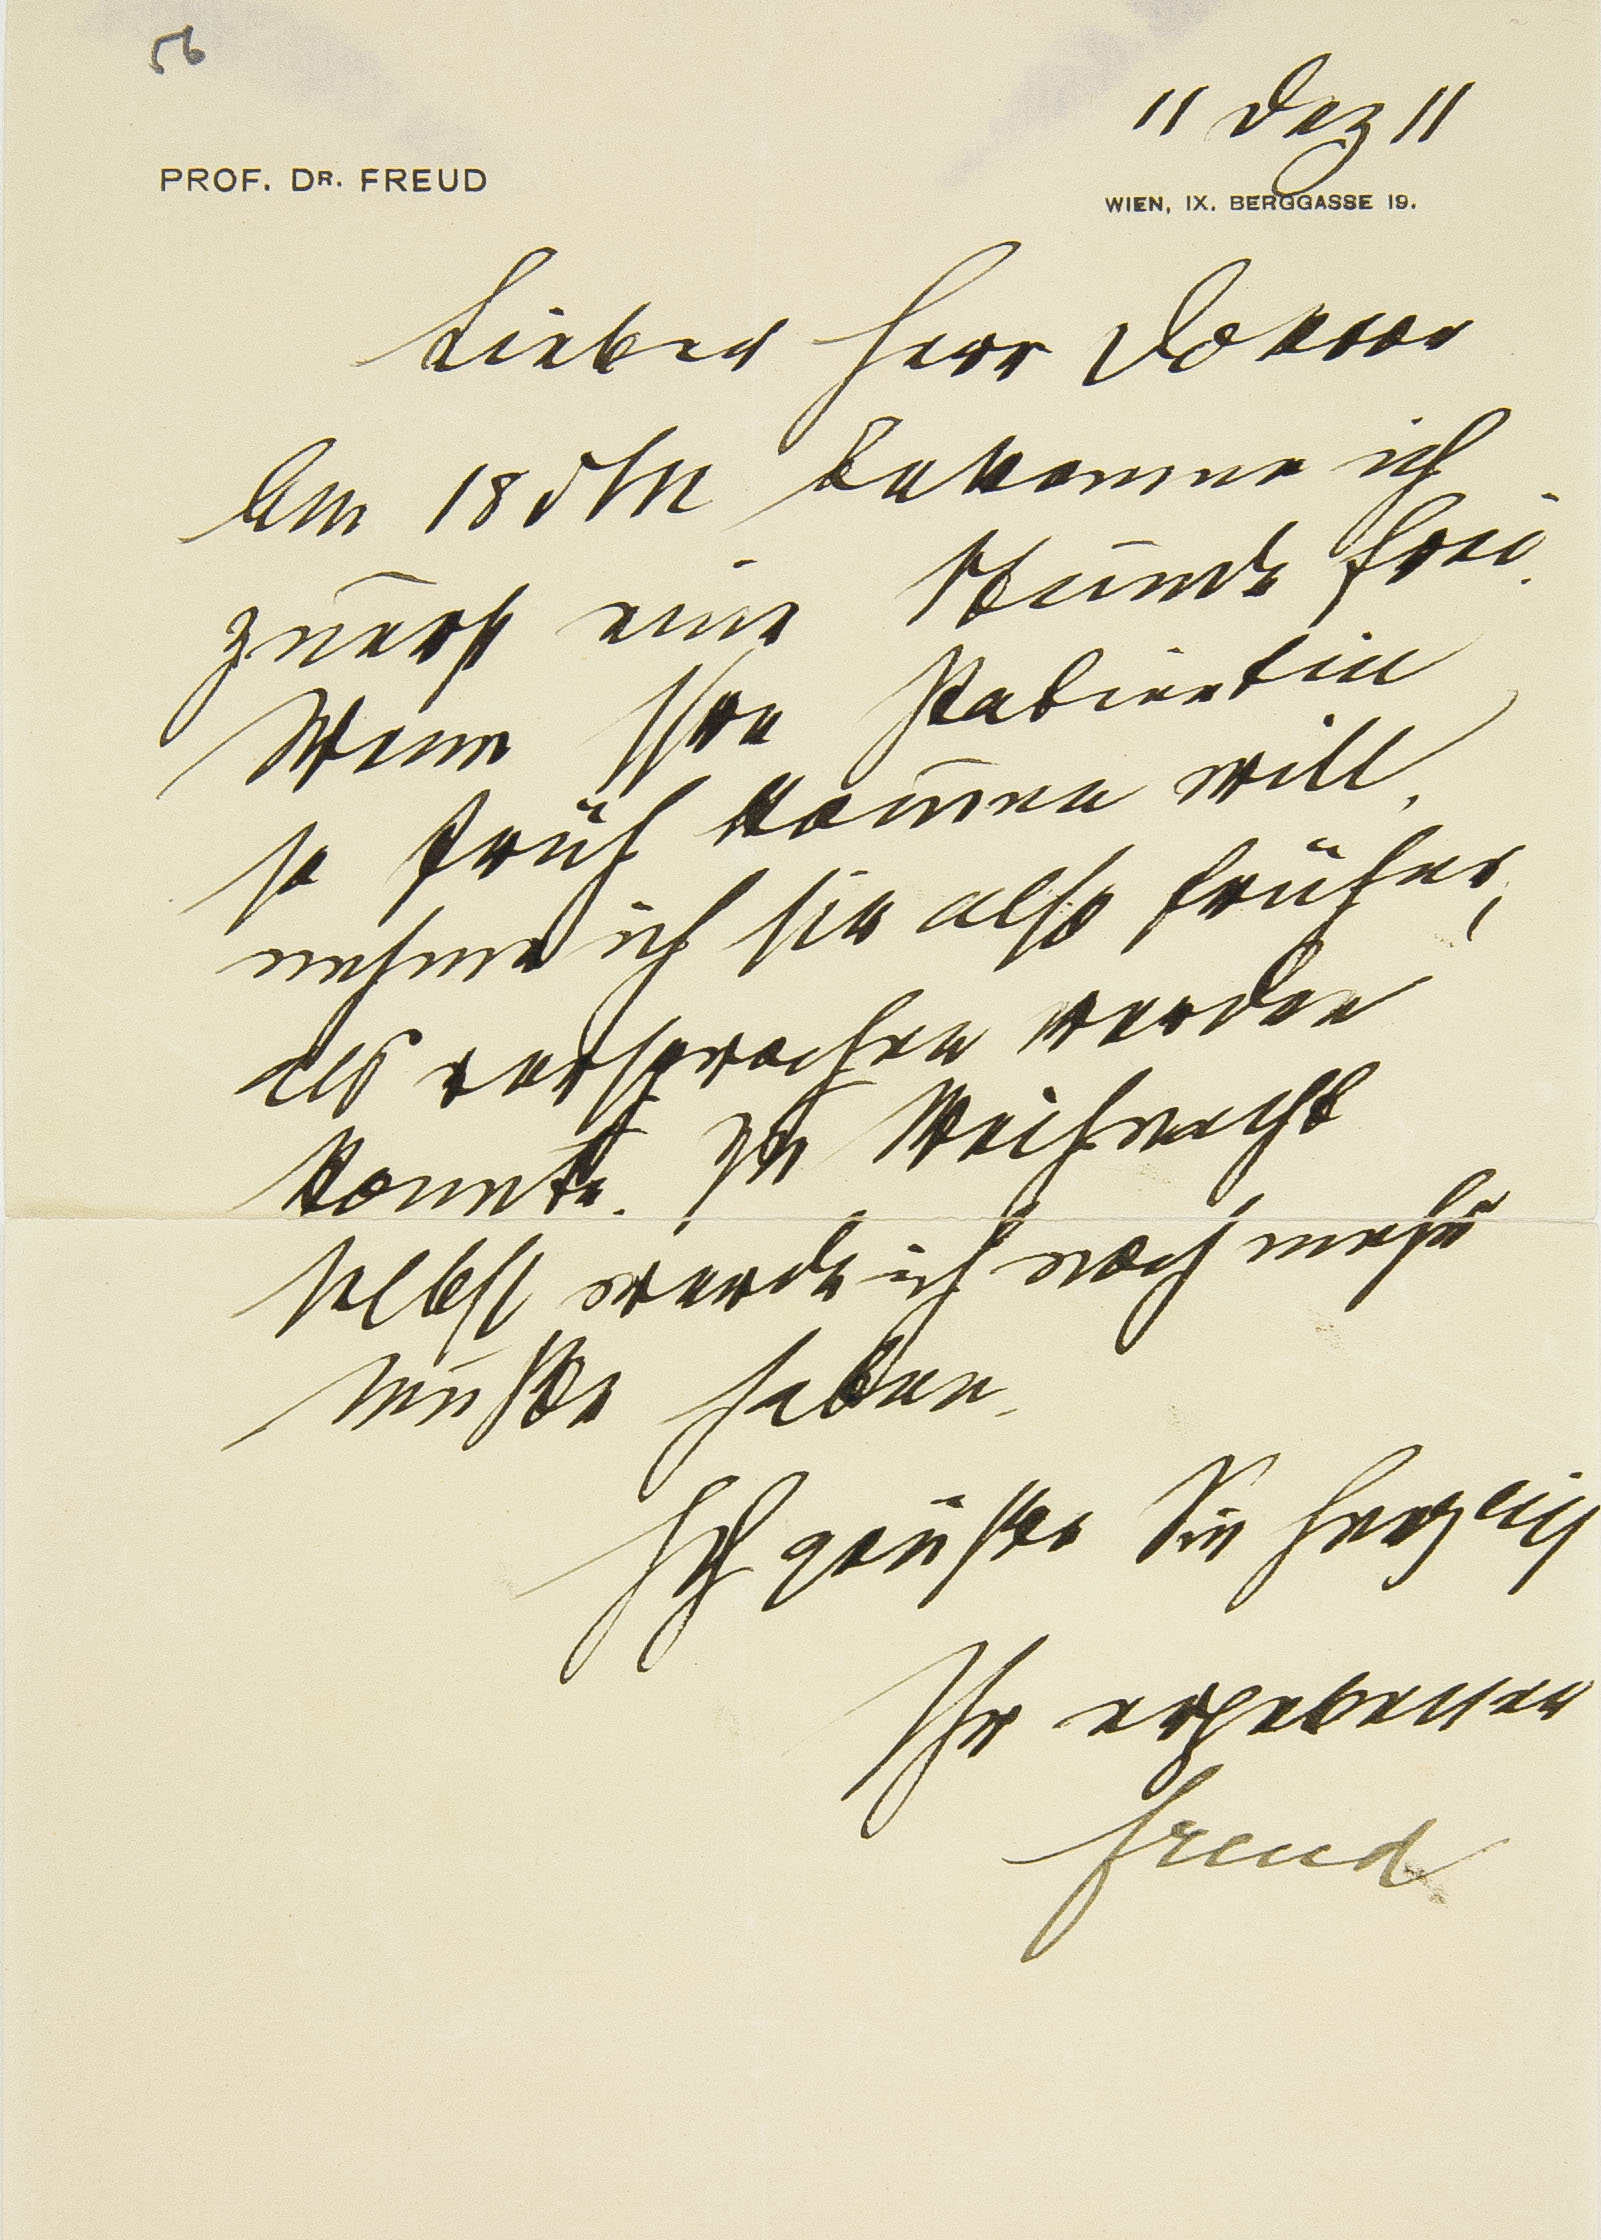 56
11 Dez 11
PROF. DR. FREUD
WIEN, IX. BERGGASSE 19.
Lieber Herr Doktor
Am 18 d M bekomme ich
zuerst eine Stunde frei.
Wenn Ihre Patientin
so früh kom̄en will,
nehme ich sie also früher,
als versprochen werden
konnte. Zu Weihnacht
selbst werde ich noch mehr
Muße haben.
Ich grüße Sie herzlich
Ihr ergebener
Freud